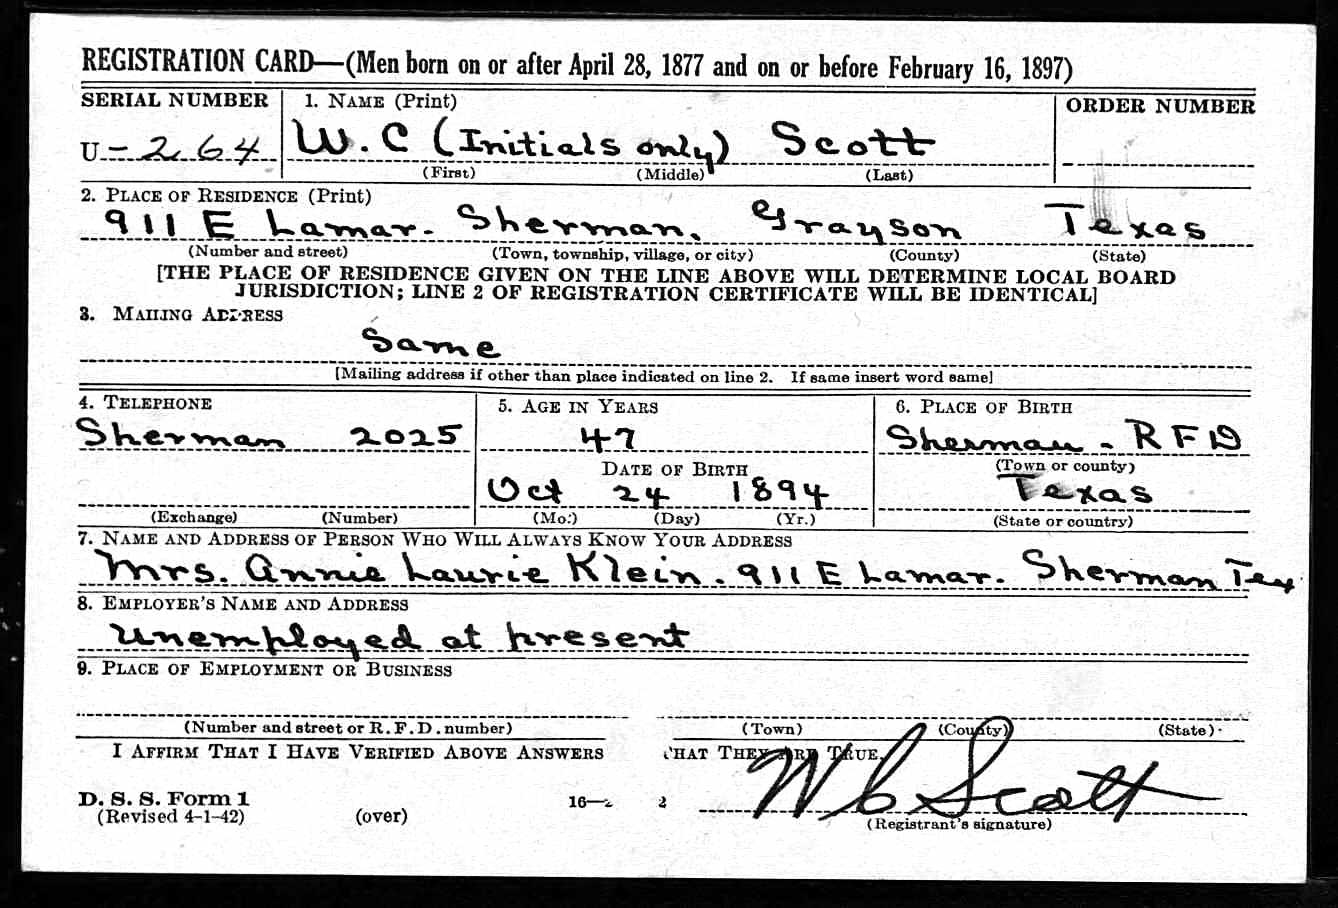 REGISTRATION CARD—(Men born on or after April 28, 1877 and on or before February 16, 1897)
SERIAL NUMBER 1. NAME (Print) ORDER NUMBER
U-264 W.C (Initials only) Scott
(First) (Middle) (Last)
2. PLACE OF RESIDENCE (Print)
911 E Lamar. Sherman. Grayson Texas
(Number and street) (Town, township, village, or city) (County) (State)
[THE PLACE OF RESIDENCE GIVEN ON THE LINE ABOVE WILL DETERMINE LOCAL BOARD
JURISDICTION; LINE 2 OF REGISTRATION CERTIFICATE WILL BE IDENTICAL]
3. MAILING ADDRESS
Same
[Mailing address if other than place indicated on line 2. If same insert word same]
4. TELEPHONE 5. AGE IN YEARS 6. PLACE OF BIRTH
Sherman 2025 47 Sherman - RFD
DATE OF BIRTH (Town or county)
Oct 24 1894 Texas
(Exchange) (Number) (Mo.) (Day) (Yr.) (State or country)
7. NAME AND ADDRESS OF PERSON WHO WILL ALWAYS KNOW YOUR ADDRESS
Mrs. Annie Laurie Klein. 911 E Lamar. Sherman Tex
8. EMPLOYER'S NAME AND ADDRESS
Unemployed at present
9. PLACE OF EMPLOYMENT OR BUSINESS
(Number and street or R.F.D. number) (Town) (County) (State)
I AFFIRM THAT I HAVE VERIFIED ABOVE ANSWERS THAT THEY ARE TRUE.
D. S. S. Form 1 16— 2 W C Scott
(Revised 4-1-42) (over) (Registrant's signature)